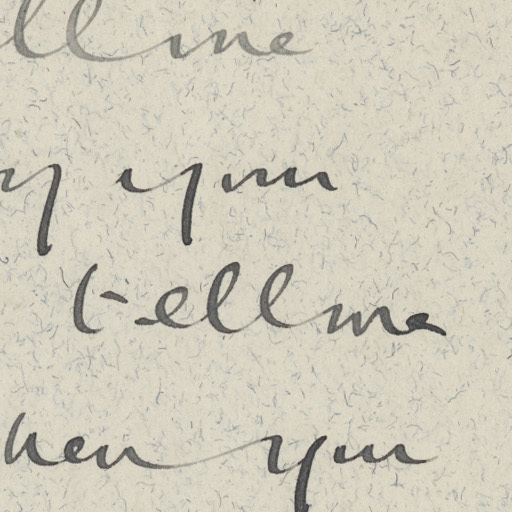 ell me
y you
tell me
hen you